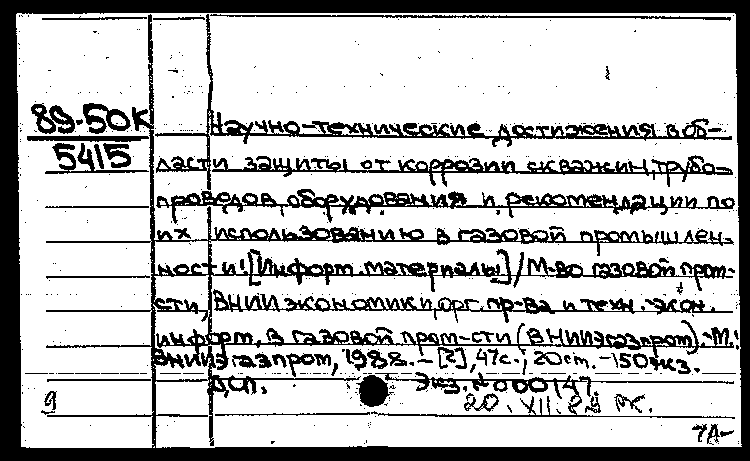 89-50К
5415
Научно-технические достижения в об-
ласти защиты от коррозии скважин, трубо-
проводов, оборудования и рекомендации по
их использованию в газовой промышлен-
ности: [Информ. материалы] / М-во газовой пром-
сти, ВНИИ экономики, орг. пр-ва и техн.-экон.
информ. в газовой пром-сти (ВНИИЭгазпром).-М.:
ВНИИЭгазпром, 1988. - [2], 47 с.; 20 см. - 150 экз.
ДСП. Экз. № 000147
9
20. XII. 89
7А-